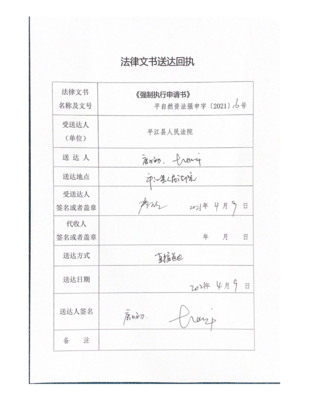 法律文书送达回执
法律文书
名称及文号
《强制执行申请书》
平自然资法强申字〔2021〕6号
受送达人
（单位）
平江县人民法院
送 达 人
送达地点
平江县人民法院
受送达人
签名或者盖章
2021年 4月 9日
代收人
签名或者盖章
年 月 日
送达方式
直接送达
送达日期
2021年 4月 9日
送达人签名
备 注